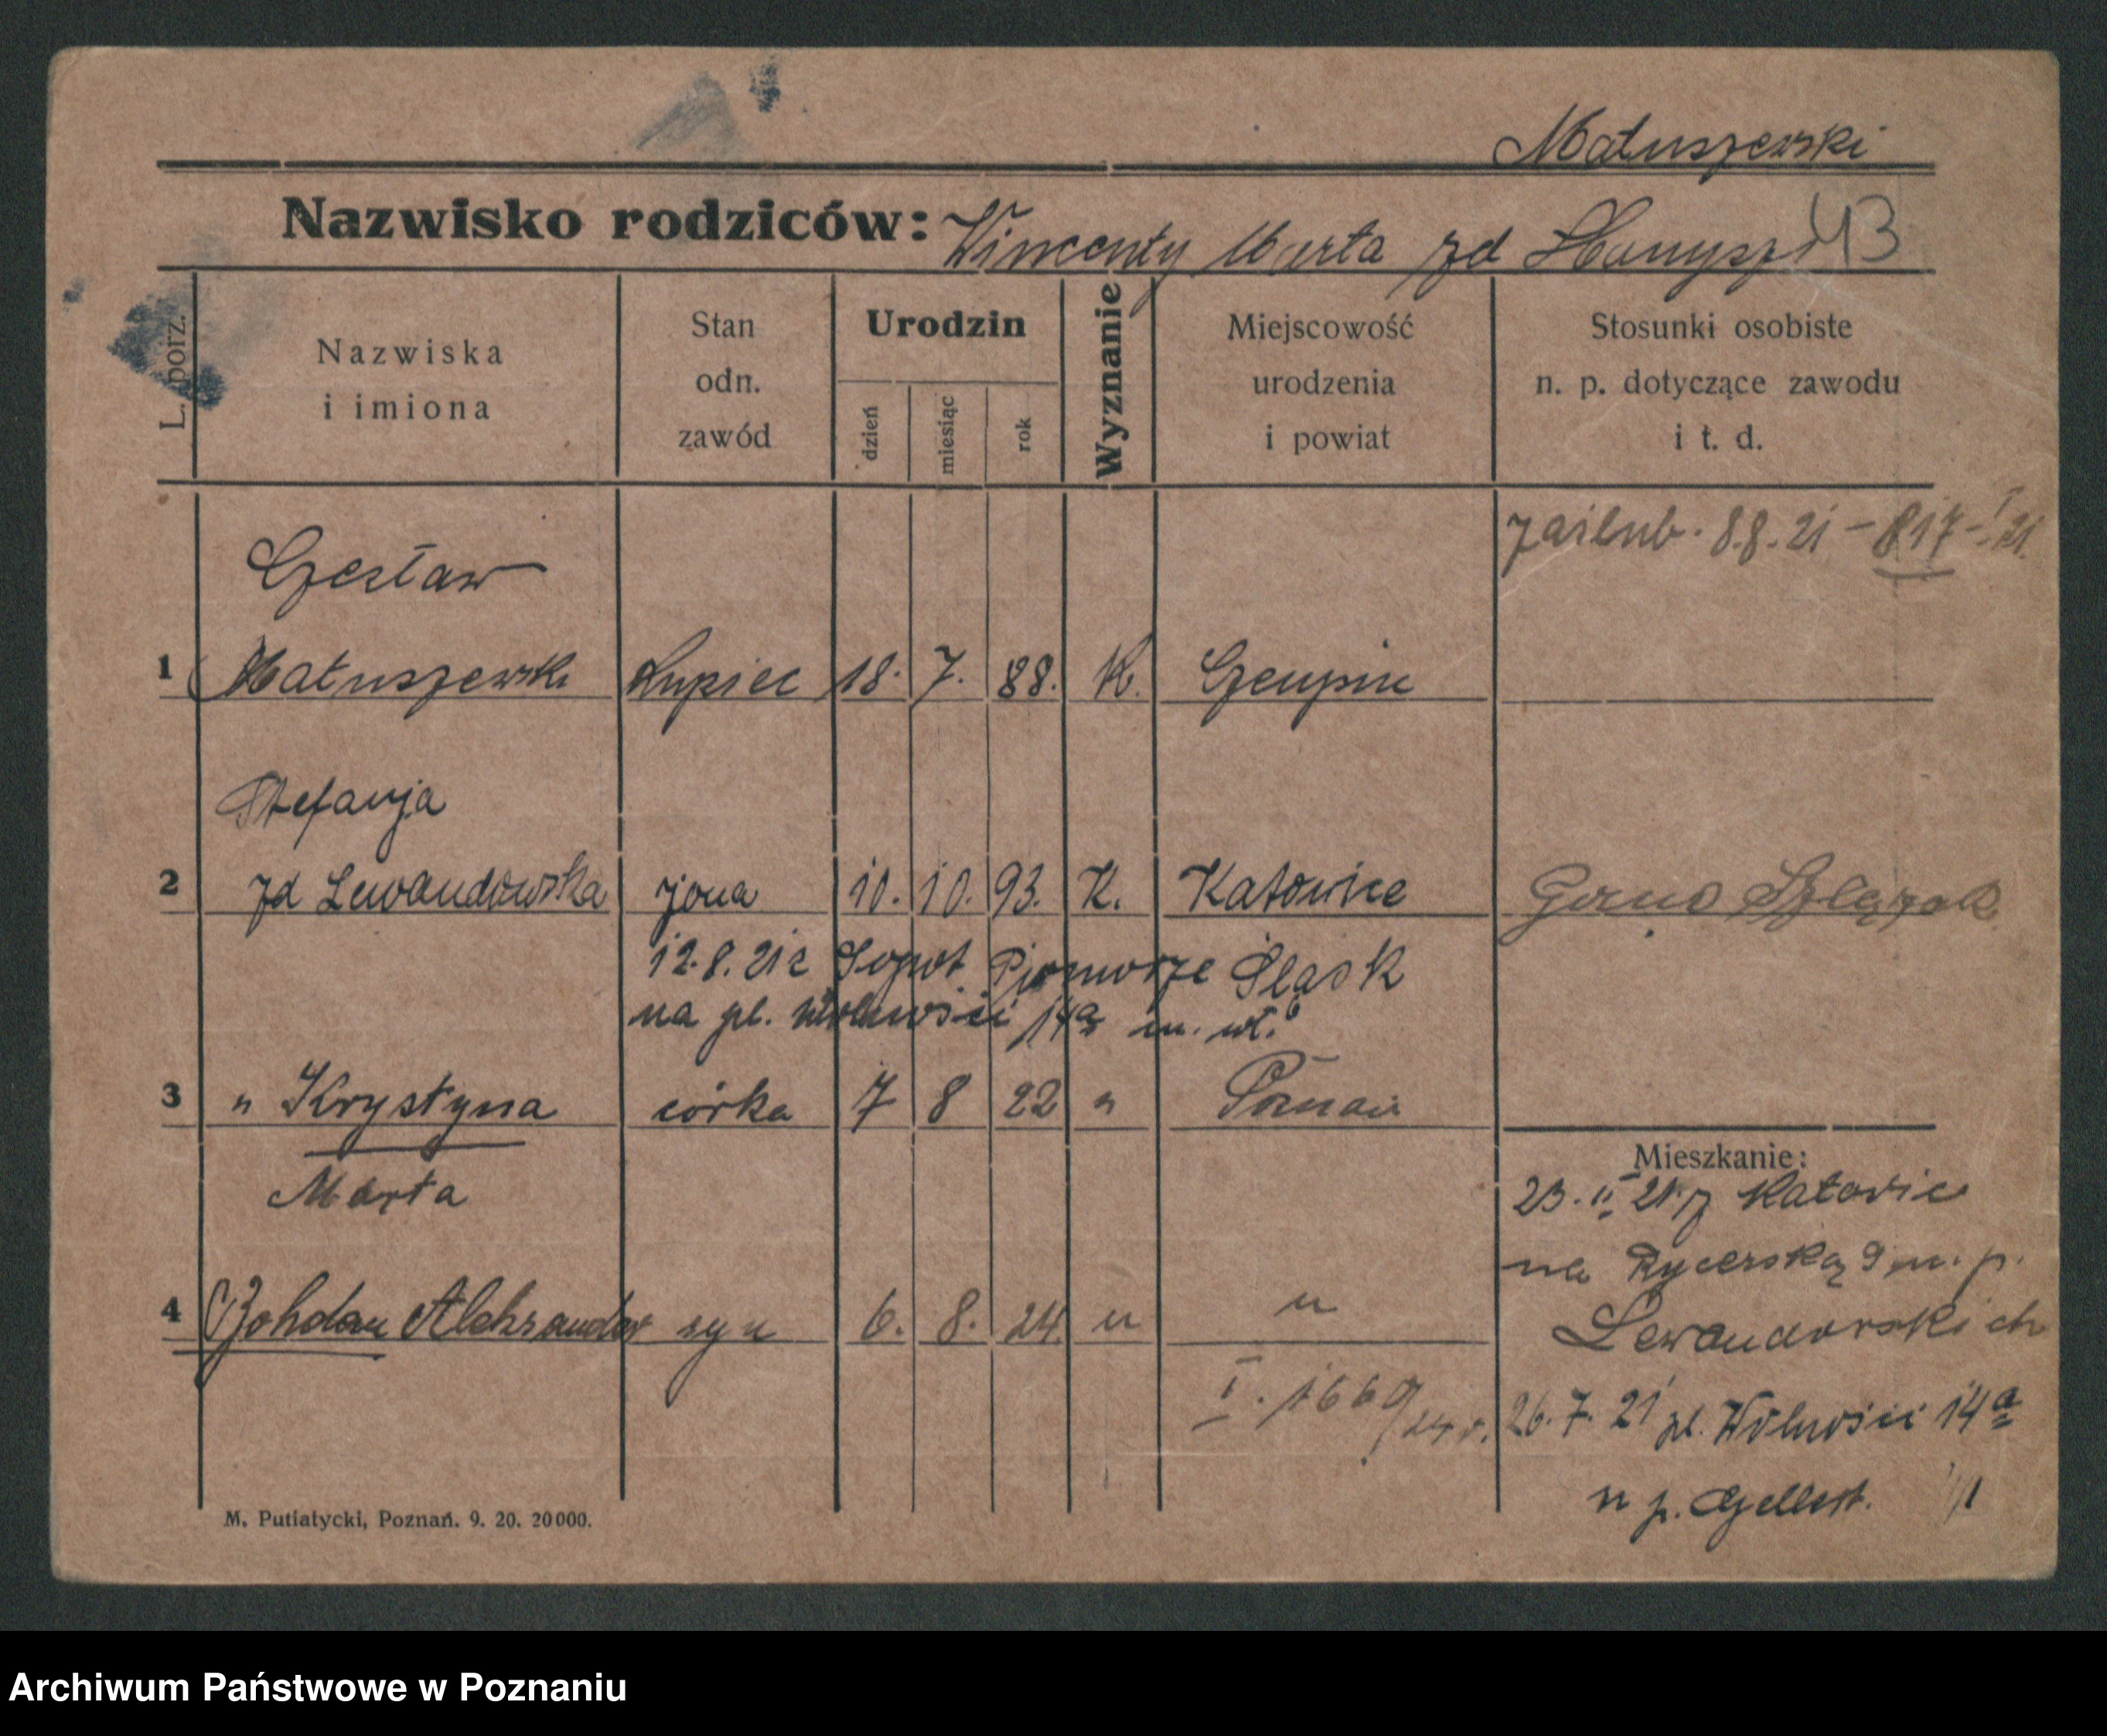 Matuszewski
Nazwisko rodziców: Wincenty Marta zd Hanysz 43
L. porz.
Nazwiska
i imiona
Stan
odn.
zawód
Urodzin
dzień
miesiąc
rok
Wyznanie
Miejscowość
urodzenia
i powiat
Stosunki osobiste
n. p. dotyczące zawodu
i t. d.
zaślub. 8.8.21 - 817-I 21.
Czesław
1 Matuszewski kupiec 18. 7. 88. K. Czempiń
Stefanja
2 zd Lewandowska żona 10. 10. 93. K. Katowice Górno Szlązak
12.8.21 z Sopot Pomorze Śląsk
na pl. Wolności 14a m. wł.
3 " Krystyna córka 7 8 22 " Poznań
Marta
4 Bohdan Aleksander syn 6. 8. 24 " "
I. 1669/24 r.
Mieszkanie:
23. II 21 z Katowic
na Rycerską 9 n. p.
Lewandowskich
26. 7. 21 pl. Wolności 14a
n p. Gellert.
M. Putiatycki, Poznań. 9. 20. 20000.
Archiwum Państwowe w Poznaniu